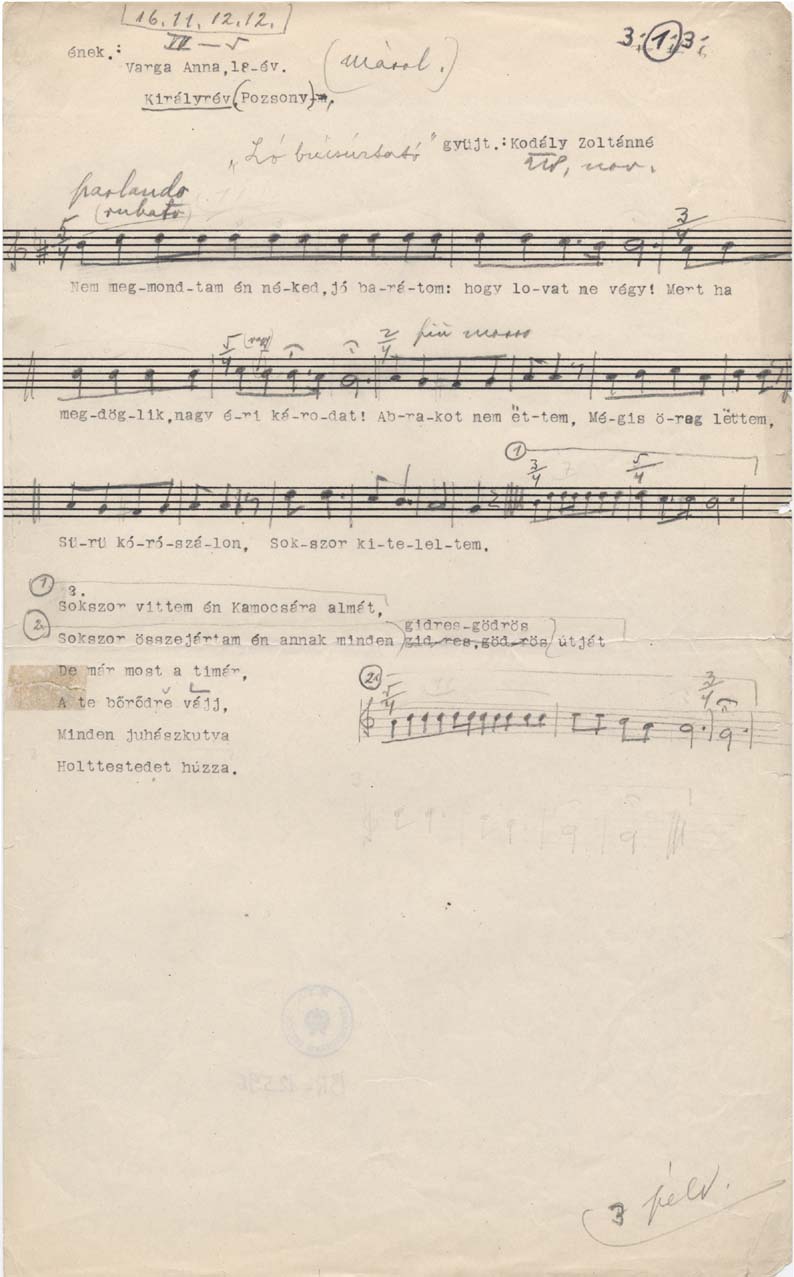 16.11.12.12.
3; 1; 3;
ének.:
Varga Anna, 18-év.
Királyrév (Pozsony)
gyüjt.: Kodály Zoltánné
„Ló búcsúztató”
nov.
parlando
(rubato)
5/4 3/4
Nem meg-mond-tam én né-ked, jó ba-rá-tom: hogy lo-vat ne végy! Mert ha
5/4 (vagy) 2/4 più mosso
meg-dög-lik, nagy é-ri ká-ro-dat! Ab-ra-kot nem ët-tem, Mé-gis ö-reg lëttem,
1 3/4 5/4
Sü-rü kó-ró-szá-lon, Sok-szor ki-te-lel-tem.
3.
1 Sokszor vittem én Kamocsára almát,
gidres-gödrös
2. Sokszor összejártam én annak minden gid-res,göd-rös útját
De már most a timár,
A te bőrödre vájj,
Minden juhászkutya
Holttestedet húzza.
2. 5/4 3/4
3 pld.